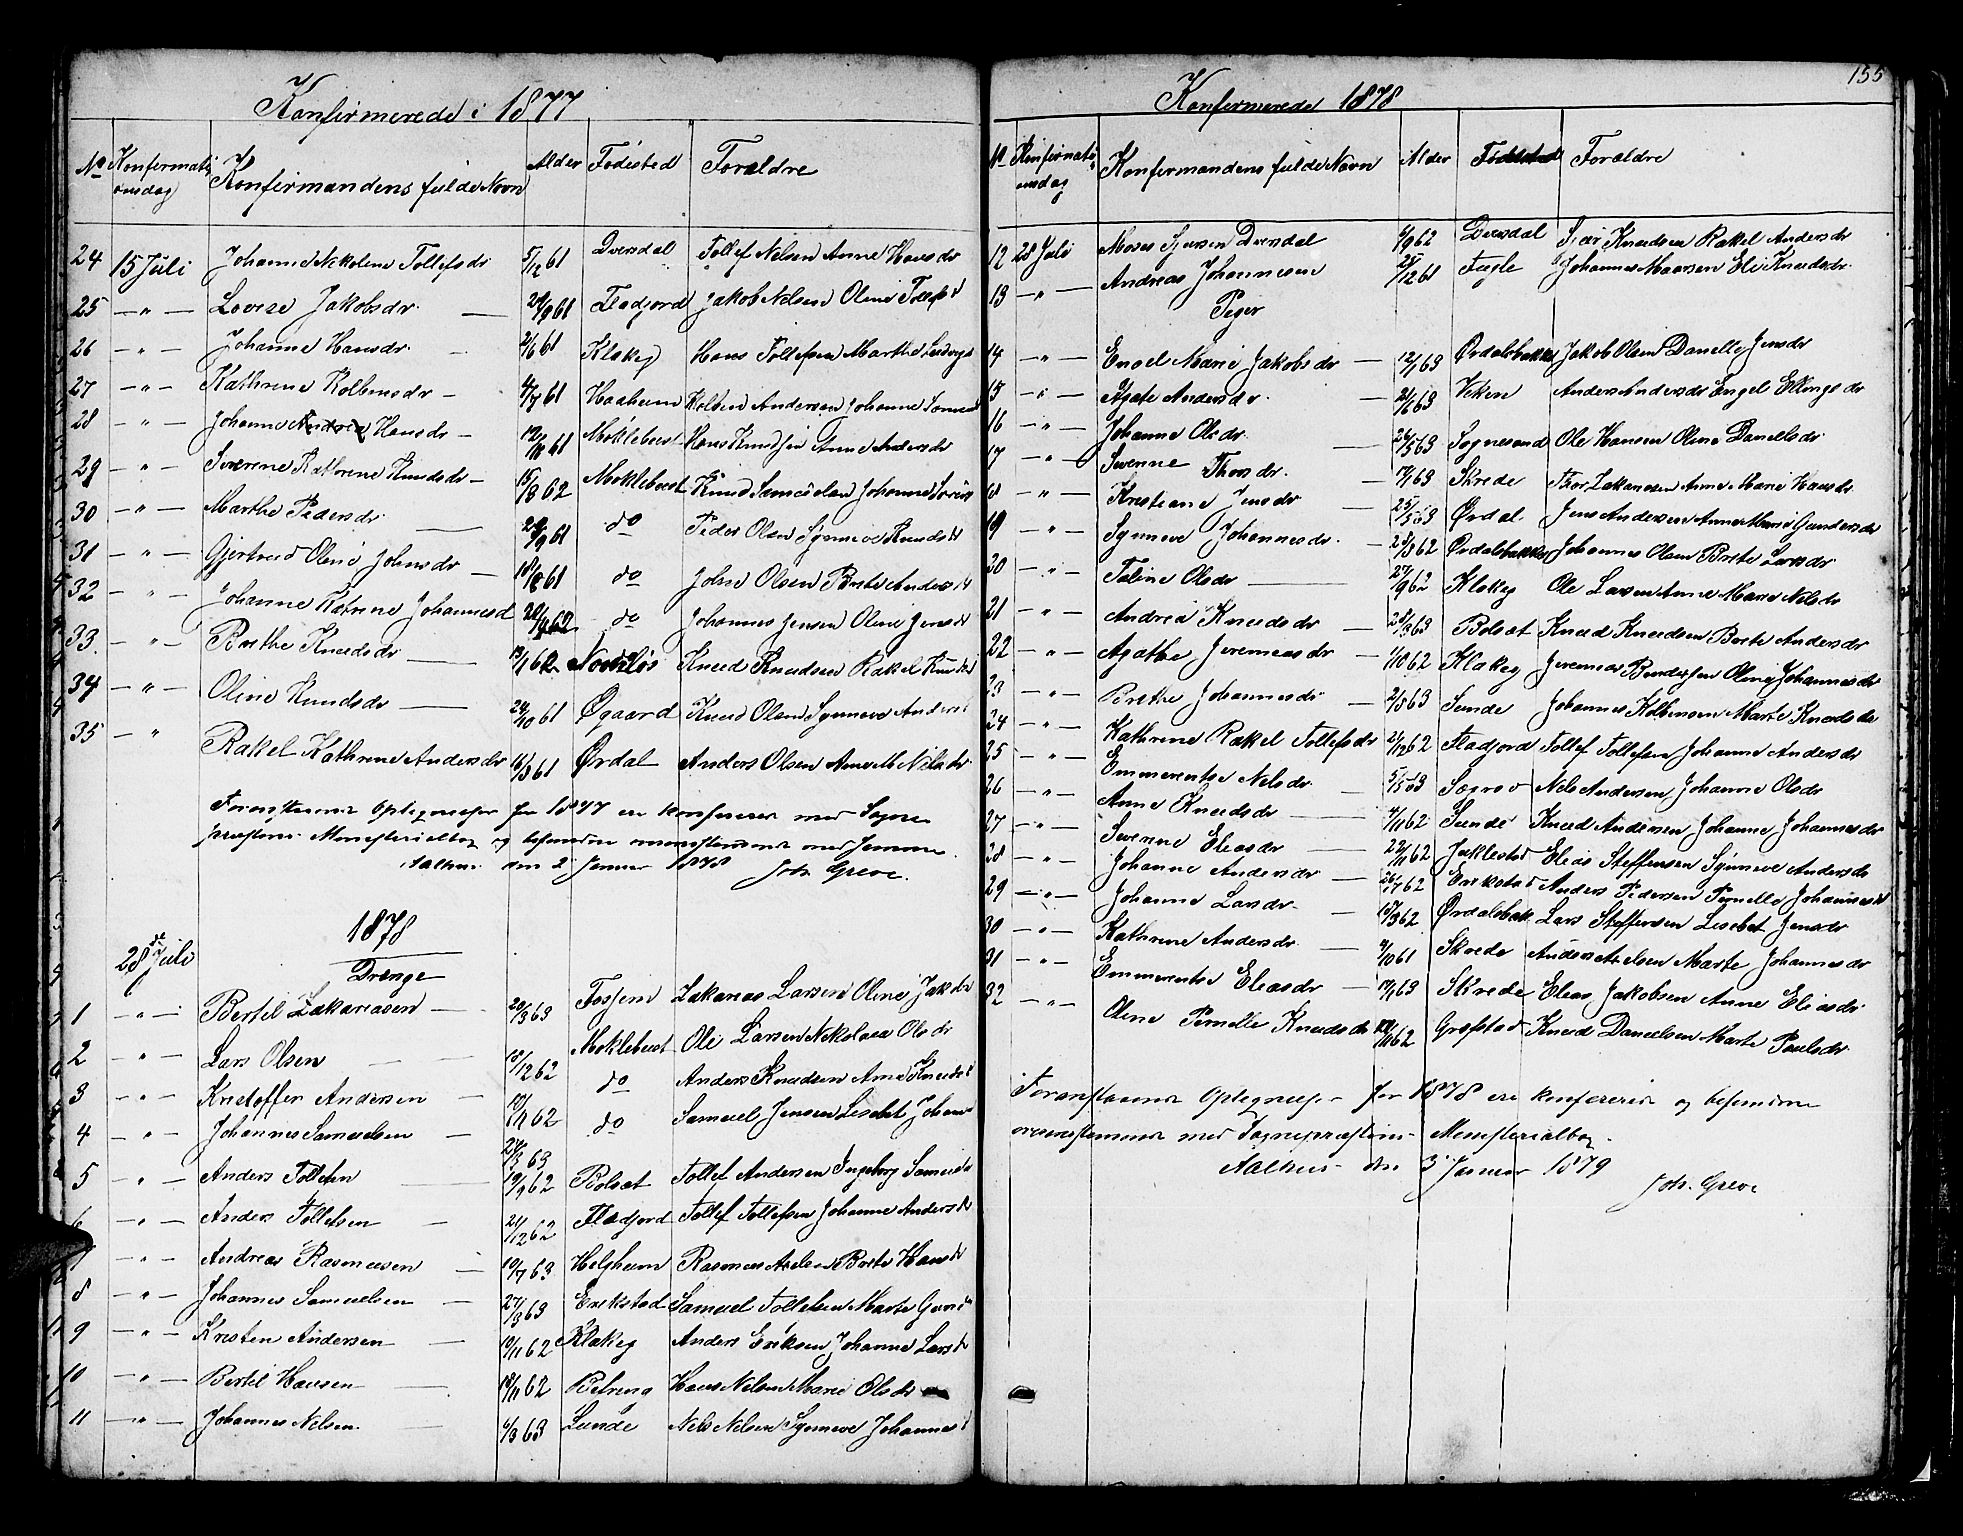 Konfirmerede i 1877
No Konfermati onsdag Konfirmandens fulde Navn Alder Födested Foraldre
24 15 Juli Johanne Nekoline Tollefsdr 5/12 61 Dversdal Tollef Nelsen Anne Hansdr
25 — " — Lovise Jakobsdr. 29/9 61 Fladjord Jakob Nelsen Oline Tollefsd
26 — " — Johanne Hansdr. 2/6 61 Klakeg Hans Tollefsen Marthe
27 — " — Kathrine Kolbensdr — 4/7 61 Haaheim Kolben Andersen Johanne
28 — " — Johanne Andrea Hansdr — 61 Moklebust Hans Knudsen Anne Andersdr
29 — " — Severene Kathrene Knudsdr — 15/3 62 Moklebust Knud Samuelsen Johanne
30 — " — Marthe Pedersdr 29/9 61 do Peder Olsen Synneve Knudsd
31 — " — Gjertrud Oline Johnsdr — 61 do John Olsen Brete Andersd
32 — " — Johanne Katrine Johannesd 62 do Johannes Jensen Oline Jensd
33. — " — Brethe Knudsdr 62 Knud Knudsen Rakel Knudsd
34 — " — Oline Knudsdr 24/10 61 Øgaard Knud Olsen Synneve Andersd
35 — " Rakel Kathrene Andersdr 16/3 61 Ørdal Anders Olsen Anne M Nilsdr
Foranstaaende Optegnelser for 1877 ere konfererede med Sogne
præstens Menesterialbog og befundne overenstemmende med samme.
Aalhus den 2 Januar 1878 Joh. Greve.
1878
28de Juli
Drenge
1 — " — Bertil Zakariasen — 20/3 63 Fossem Zakarias Larsen Oline Jakobsd
2 — " — Lars Olsen 18/12 62 Moklebust Ole Larsen Nekolaea Olsdr
3 — " — Kristoffer Andersen 62 do Anders Knudsen Anne Knudsd
4 — " — Johannes Samuelsen 24/3 63 do Samuel Jensen Lesebet Johans
5 — " — Anders Tollefsen 19/9 62 Bolsæt Tollef Andersen Ingeborg Samuelsd
6 — " — Anders Tollefsen 21/12 62 Fladjord Tollef Tollefsen Johanne Andersd
7 — " — Andreas Rasmussen 10/7 63 Helgheim Rasmus Brete Hansd
8 — " — Johannes Samuelsen 27/3 63 Erikstad Samuel Tollefsen Marte
9 — " — Kristen Andersen 10/11 62 Klakeg Anders Eriksen Johanne Larsd
10 — " — Bertil Hansen 18/11 62 Betreng Hans Nelsen Marie Olsdr
11 — " — Johannes Nelsen 6/3 63 Lunde Nels Nelsen Synneve Johannesd
155
Konfermerede 1878
No Konfirmati onsdag Konfermandens fulde Navn Alder Födested Forældre
12 28 Juli Moses Sjursen Dversdal 4/9 62 Dversdal Sjur Knudsen Rakel Andersdr
13 — " — Andreas Johannesen 25/12 61 Fugle Johannes Eli Knudsdr.
Piger
14 — " — Engel Marie Jakobsdr — 12/1 63 Ørdalsbakke Jakob Olsen Danelle Jensdr
15 — " — Agate Andersdr. — 2/6 63 Veken Anders Andersdr Engel Ellingsdr
16 — " — Johanne Olsdr. 63 Sognesand Ole Hansen Oline Danelsdr
17 — " — Severene Thorsdr. 63 Skrede Thor Zakariasen Anne Marie Hansdr
18 — " — Kristiane Jensdr 25/5 63 Ørdal Jens Andersen Anne Marie Gundersdr
19 — " — Synneve Johannesdr. — 62 Ørdalsbakke Johannes Olsen Brete Larsdr
20 — " — Taline Olsdr 27/9 62 Klakeg Ole Larsen Anne Marie Nelsdr
21 — " — Andrea Knudsdr — 63 Bolsæt Knud Knudsen Brete Andersdr
22 — " — Agathe Jeremeasdr — 1/10 62 Klakeg Jeremeas Oline Johannesdr
23 — " — Brethe Johannesdr — 2/5 63 Sunde Johannes Kolbensen Marte Knudsdr
24 — " — Kathrene Rakel Tollefsdr 21/12 62 Fladjord Tollef Tollefsen Johanne Andersdr
25 — " — Emmerentse Nelsdr 5/5 63 Nels Andersen Johanne Olsdr
26 — " — Anne Knudsdr 62 Sunde Knud Andersen Johanne Johannesdr
27 — " — Severene Eleasdr 22/11 62 Elias Steffensen Synneve Andersdr
28 — " — Johanne Andersdr — 26/7 62 Erikstad Anders Pedersen Pernelle Johannesd
29 — " — Johanne Larsdr — 62 Ørdalsbak Lars Steffensen Lesebet Jensdr
30 — " — Kathrene Andersdr. — 61 Skrede Anders Marte Johannesdr
31 — " — Emmerentse Eleasdr — 63 Skrede Eleas Jakobsen Anne Eliasdr
32 — " — Oline Pernelle Knudsdr 62 Grofstad Knud Danielsen Marte Paulsdr
Foranstaaende Optegnelser for 1878 ere konfererede og befundne
overenstemmende med Sognepræstens Menesterialbog.
Aalhus den 3 Januar 1879
Joh. Greve